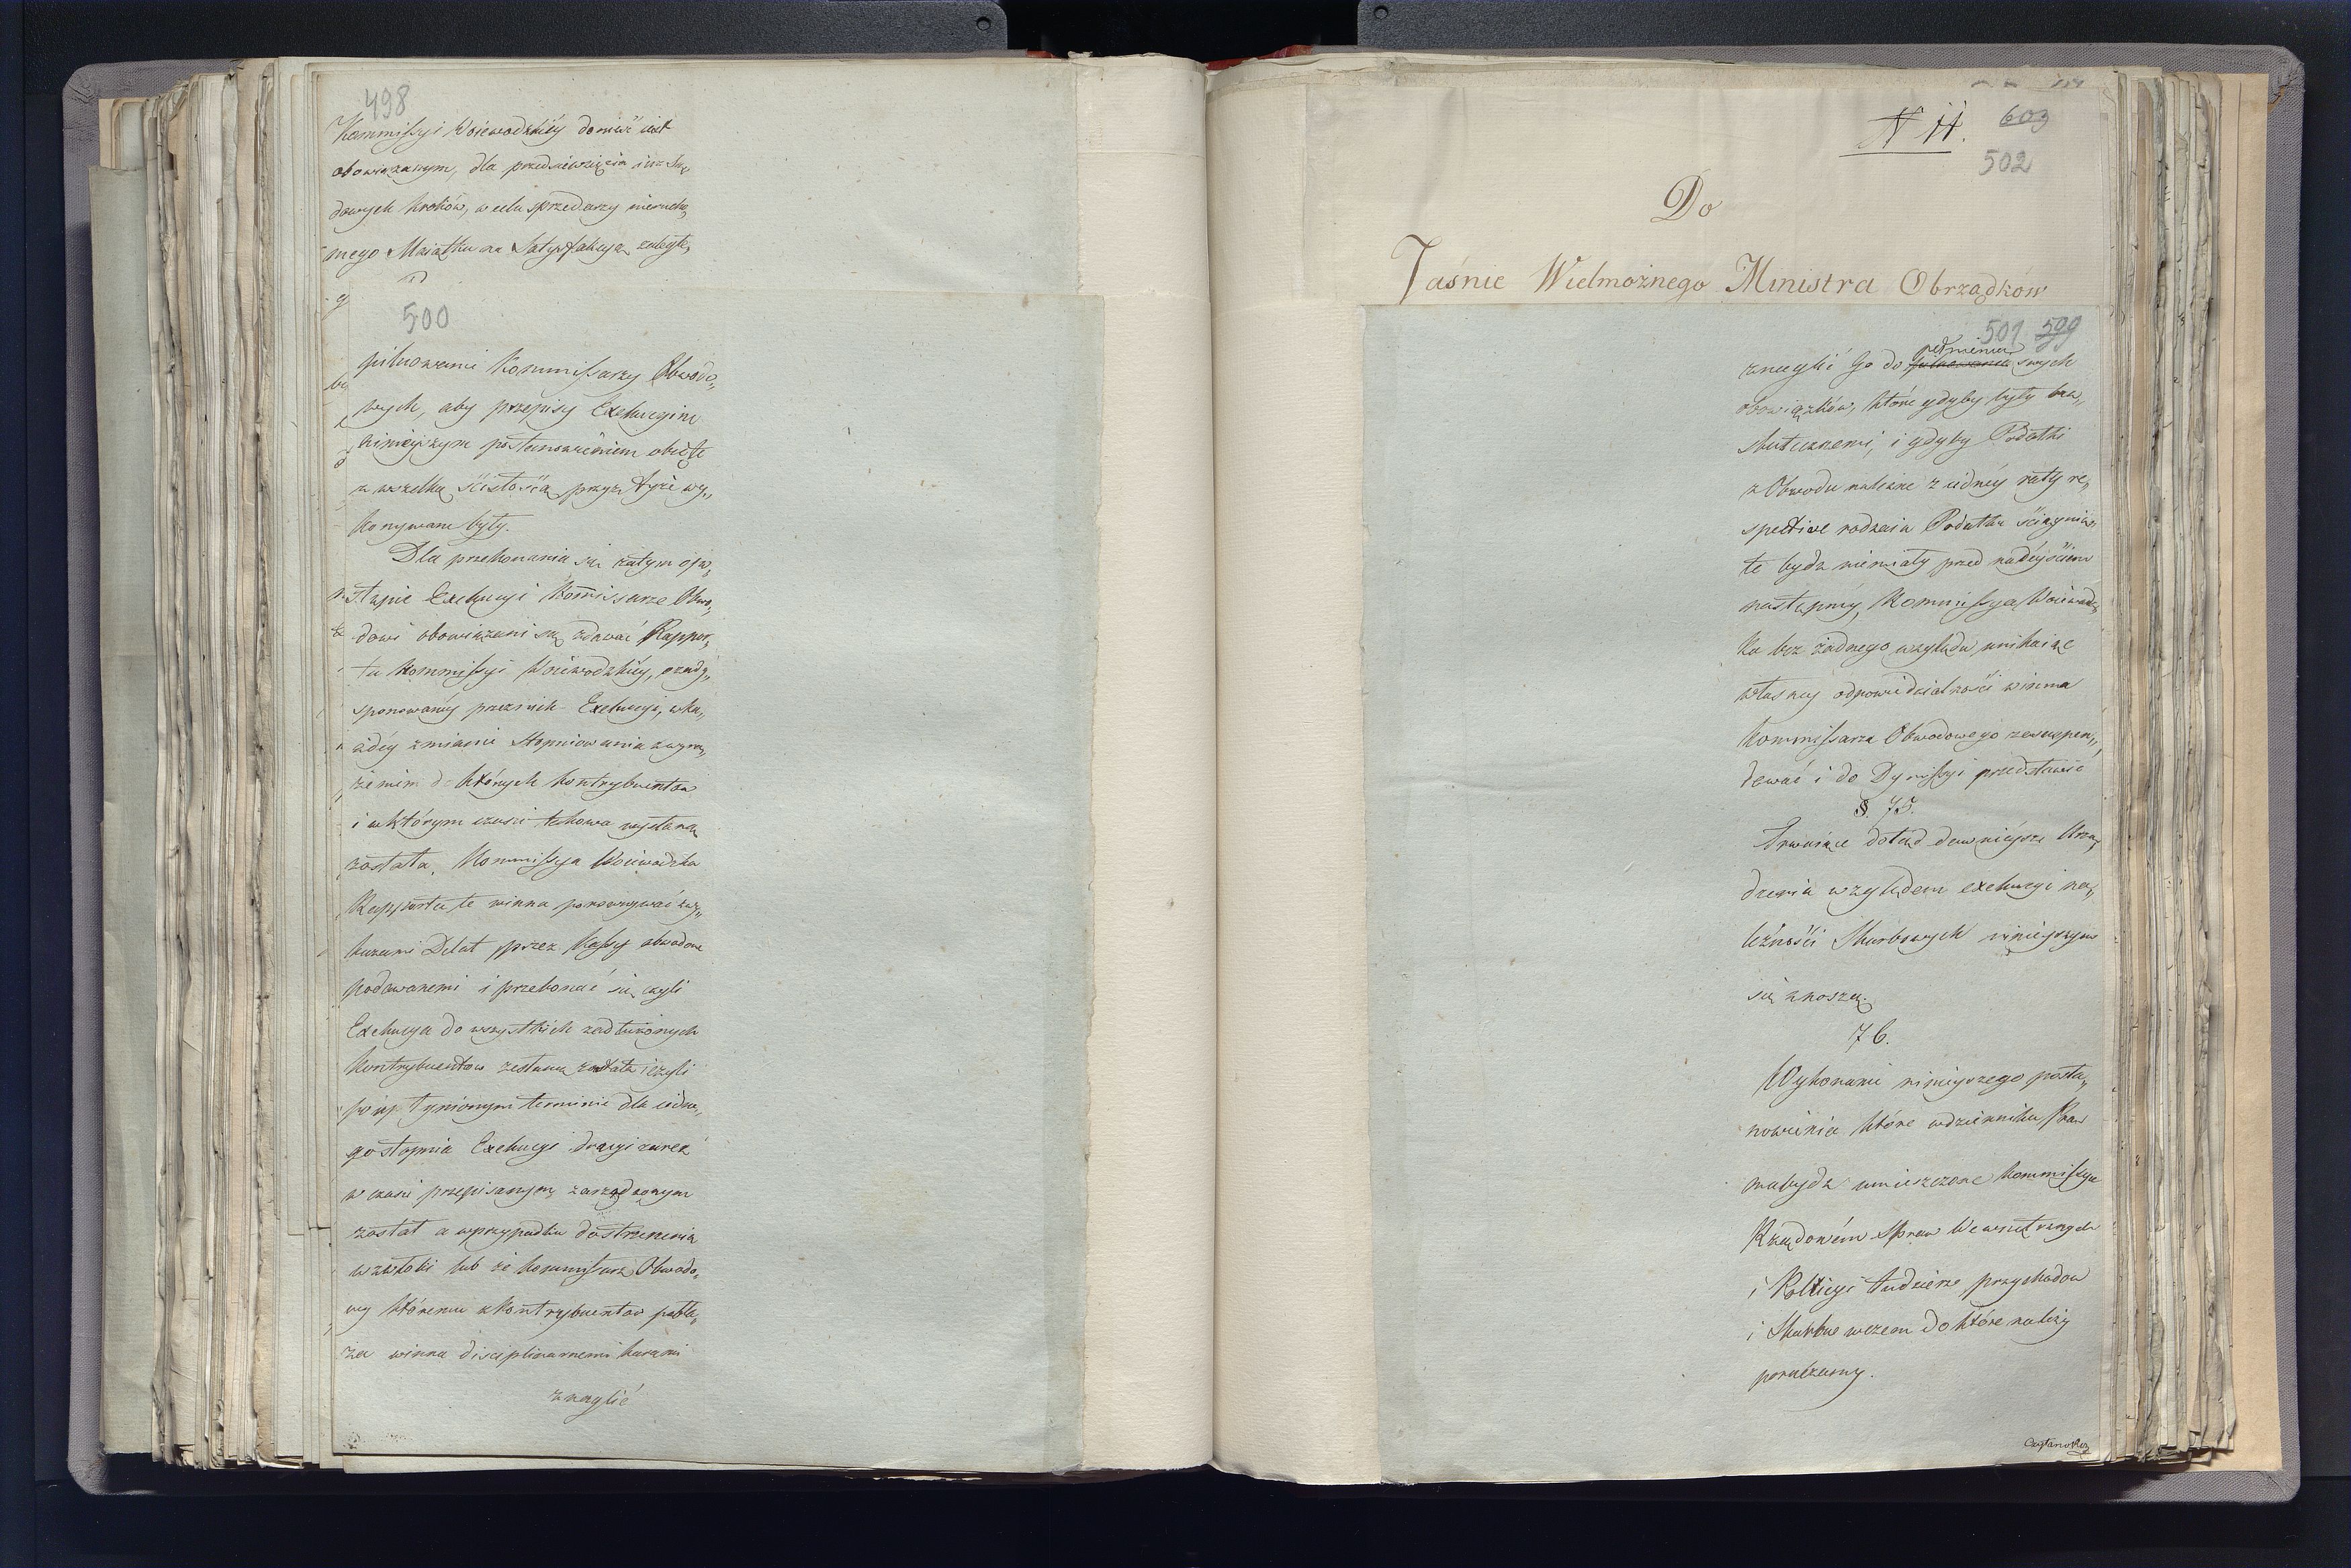 498
Kommissyi Woiewodzkiéy donieść iest
obowiązanym, dla przedsięwzięcia
dowych kroków, w celu sprzedarzy nierucho„
mego Maiątku na Satysfakcyą zaległ„
500
pilnowanie Kommissarzy Obwodo„
wych, aby przepisy Exekucyine
ninieyszym postanowieniem obięte
z wszelką ścisłością przez tychże wy„
konywane były.
Dla przekonania się zatym o
stępie Exekucyi Kommissarze Obwo„
dowi obowiązani są zdawać Rappor„
ta Kommissyi Woiewodzkiéy, o zady„
sponowanéy przez nich Exekucyi, w ka„
żdéy zmianie stopniowania z wyra„
żeniem do których kontrybuentów
i w którym czasie takowa wysłaną
została, Kommissya Woiewodzka
Rapporta te winna porównywać z wy„
kazami Delat przez Kassy obwodowe
podawanemi i przekonać się czyli
Exekucya do wszystkich zadłużonych
Kontrybuentów zesłaną została i czyli
po upłynionym terminie dla iedne„
go stopnia Exekucyi drugi zaraz
w czasie przepisanym zarządzonym
został a w przypadku dostrzeżenia
w zwłoki lub że Kommissarz Obwodo„
wy któremu z kontrybuentów pobła„
ża winna disciplinarnemi karami
znaglić
N 11.
603
502
Do
Jaśnie Wielmożnego Ministra Obrządkow
501 599
pełnienia
znaglić Go do pilnowania swych
obowiązków, które gdyby były bez„
skutecznemi, i gdyby Podatki
z Obwodu należne z iednéy raty re„
spective rodzaiu Podatku ściągnię„
te bydź niemiały przed nadeyściem
następnéy, Kommissya Woiewodz„
ka bez żadnego względu unikaiąc
własney odpowiedzialności winna
Kommissarza Obwodowego zasuspen„
dować i do Dymissyi przedstawić
§. 75.
Trwaiące dotąd dawnieysze Urzą„
dzenia względem exekucyi na„
leżności Skarbowych ninieyszym
się znoszą.
76.
Wykonanie ninieyszego posta„
nowienia które w dzienniku Praw
ma bydź umieszczone Kommissyom
Rządowém Spraw Wewnętrznych
i Policyi tudzież przychodow
i Skarbu w czem do które należy
poruczamy.